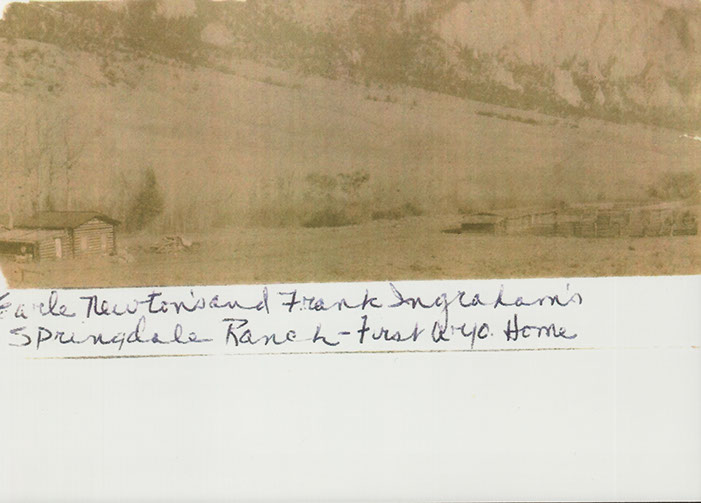 Earle Newton's and Frank Ingraham's
Springdale Ranch - First Wyo. Home